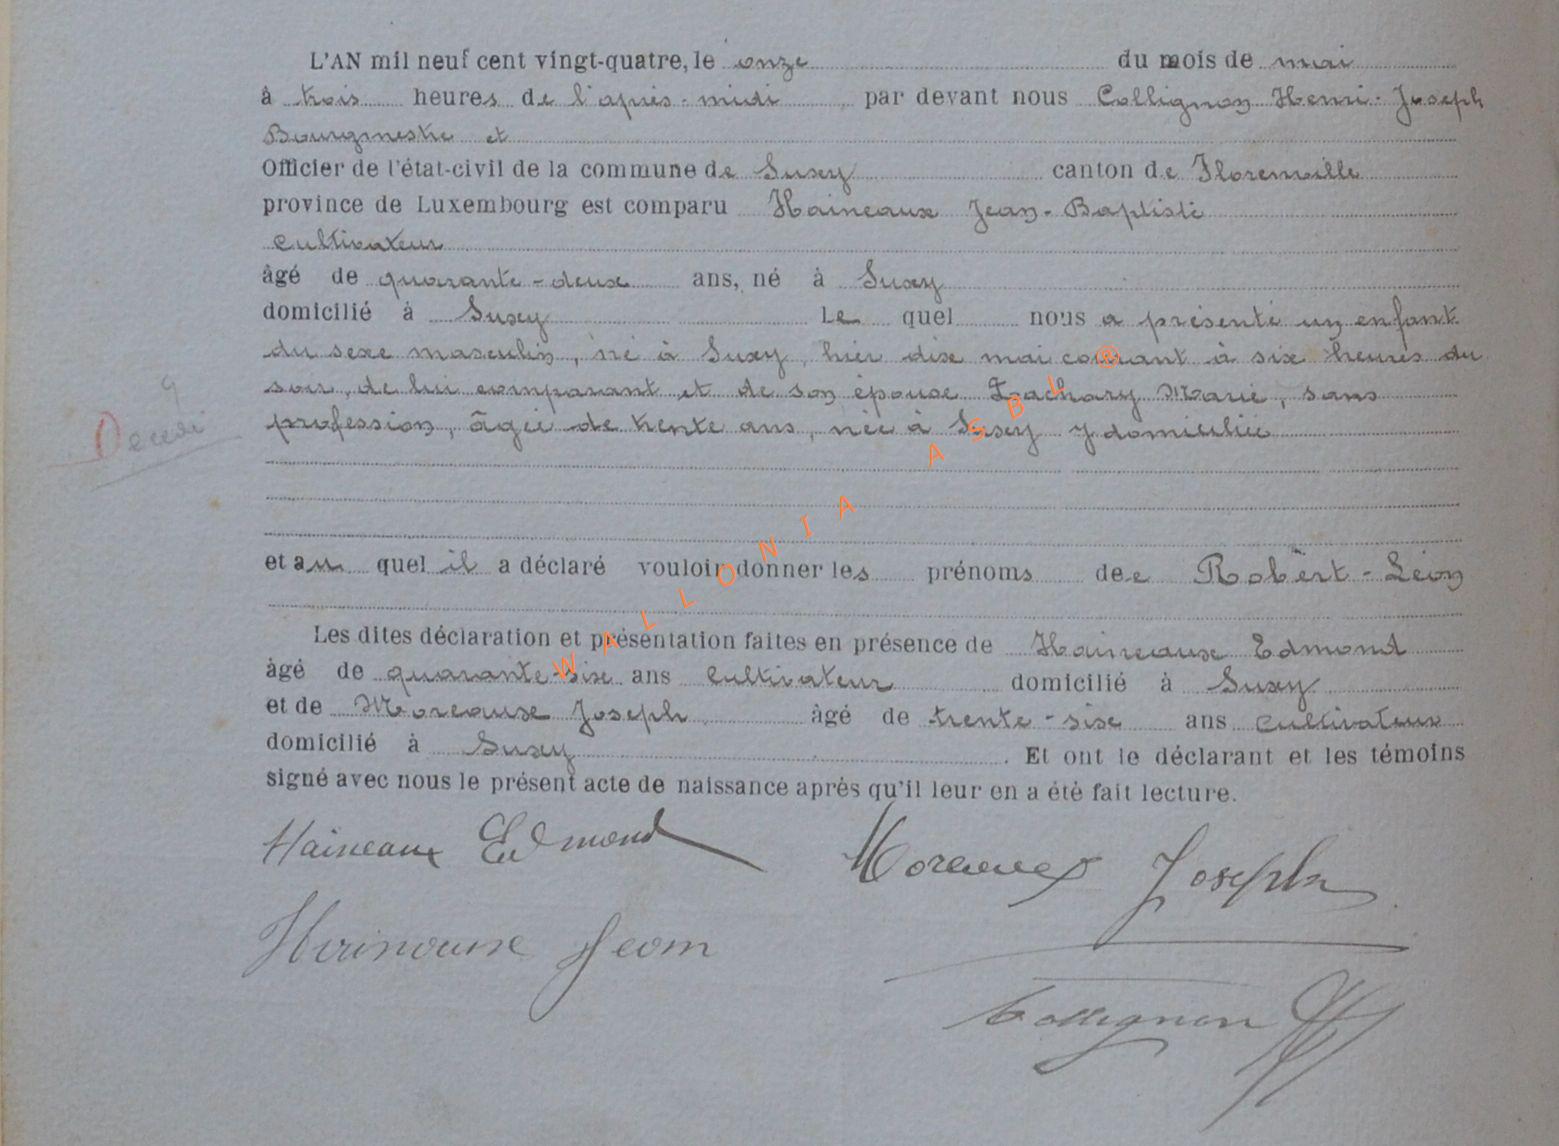 L'AN mil neuf cent vingt-quatre, le onze du mois de mai
à trois heures de l'après-midi par devant nous Collignon Henri-Joseph
Bourgmestre et
Officier de l'état-civil de la commune de Suxy canton de Florenville
province de Luxembourg est comparu Haineaux Jean-Baptiste
cultivateur
âgé de quarante-deux ans, né à Suxy
domicilié à Suxy Le quel nous a présenté un enfant
du sexe masculin, né à Suxy, hier dix mai courant à six heures du
soir, de lui comparant et de son épouse Zachary Marie, sans
profession, âgée de trente ans, née à Suxy y domiciliée
Décédé
et au quel il a déclaré vouloir donner les prénoms de Robert-Léon
Les dites déclaration et présentation faites en présence de Haineaux Edmond
âgé de quarante-six ans cultivateur domicilié à Suxy
et de Moreaux Joseph âgé de trente-six ans cultivateur
domicilié à Suxy. Et ont le déclarant et les témoins
signé avec nous le présent acte de naissance après qu'il leur en a été fait lecture.
Haineaux Edmond Moreaux Joseph
Hainaux Jean
Collignon H
WALLONIA ASBL ®